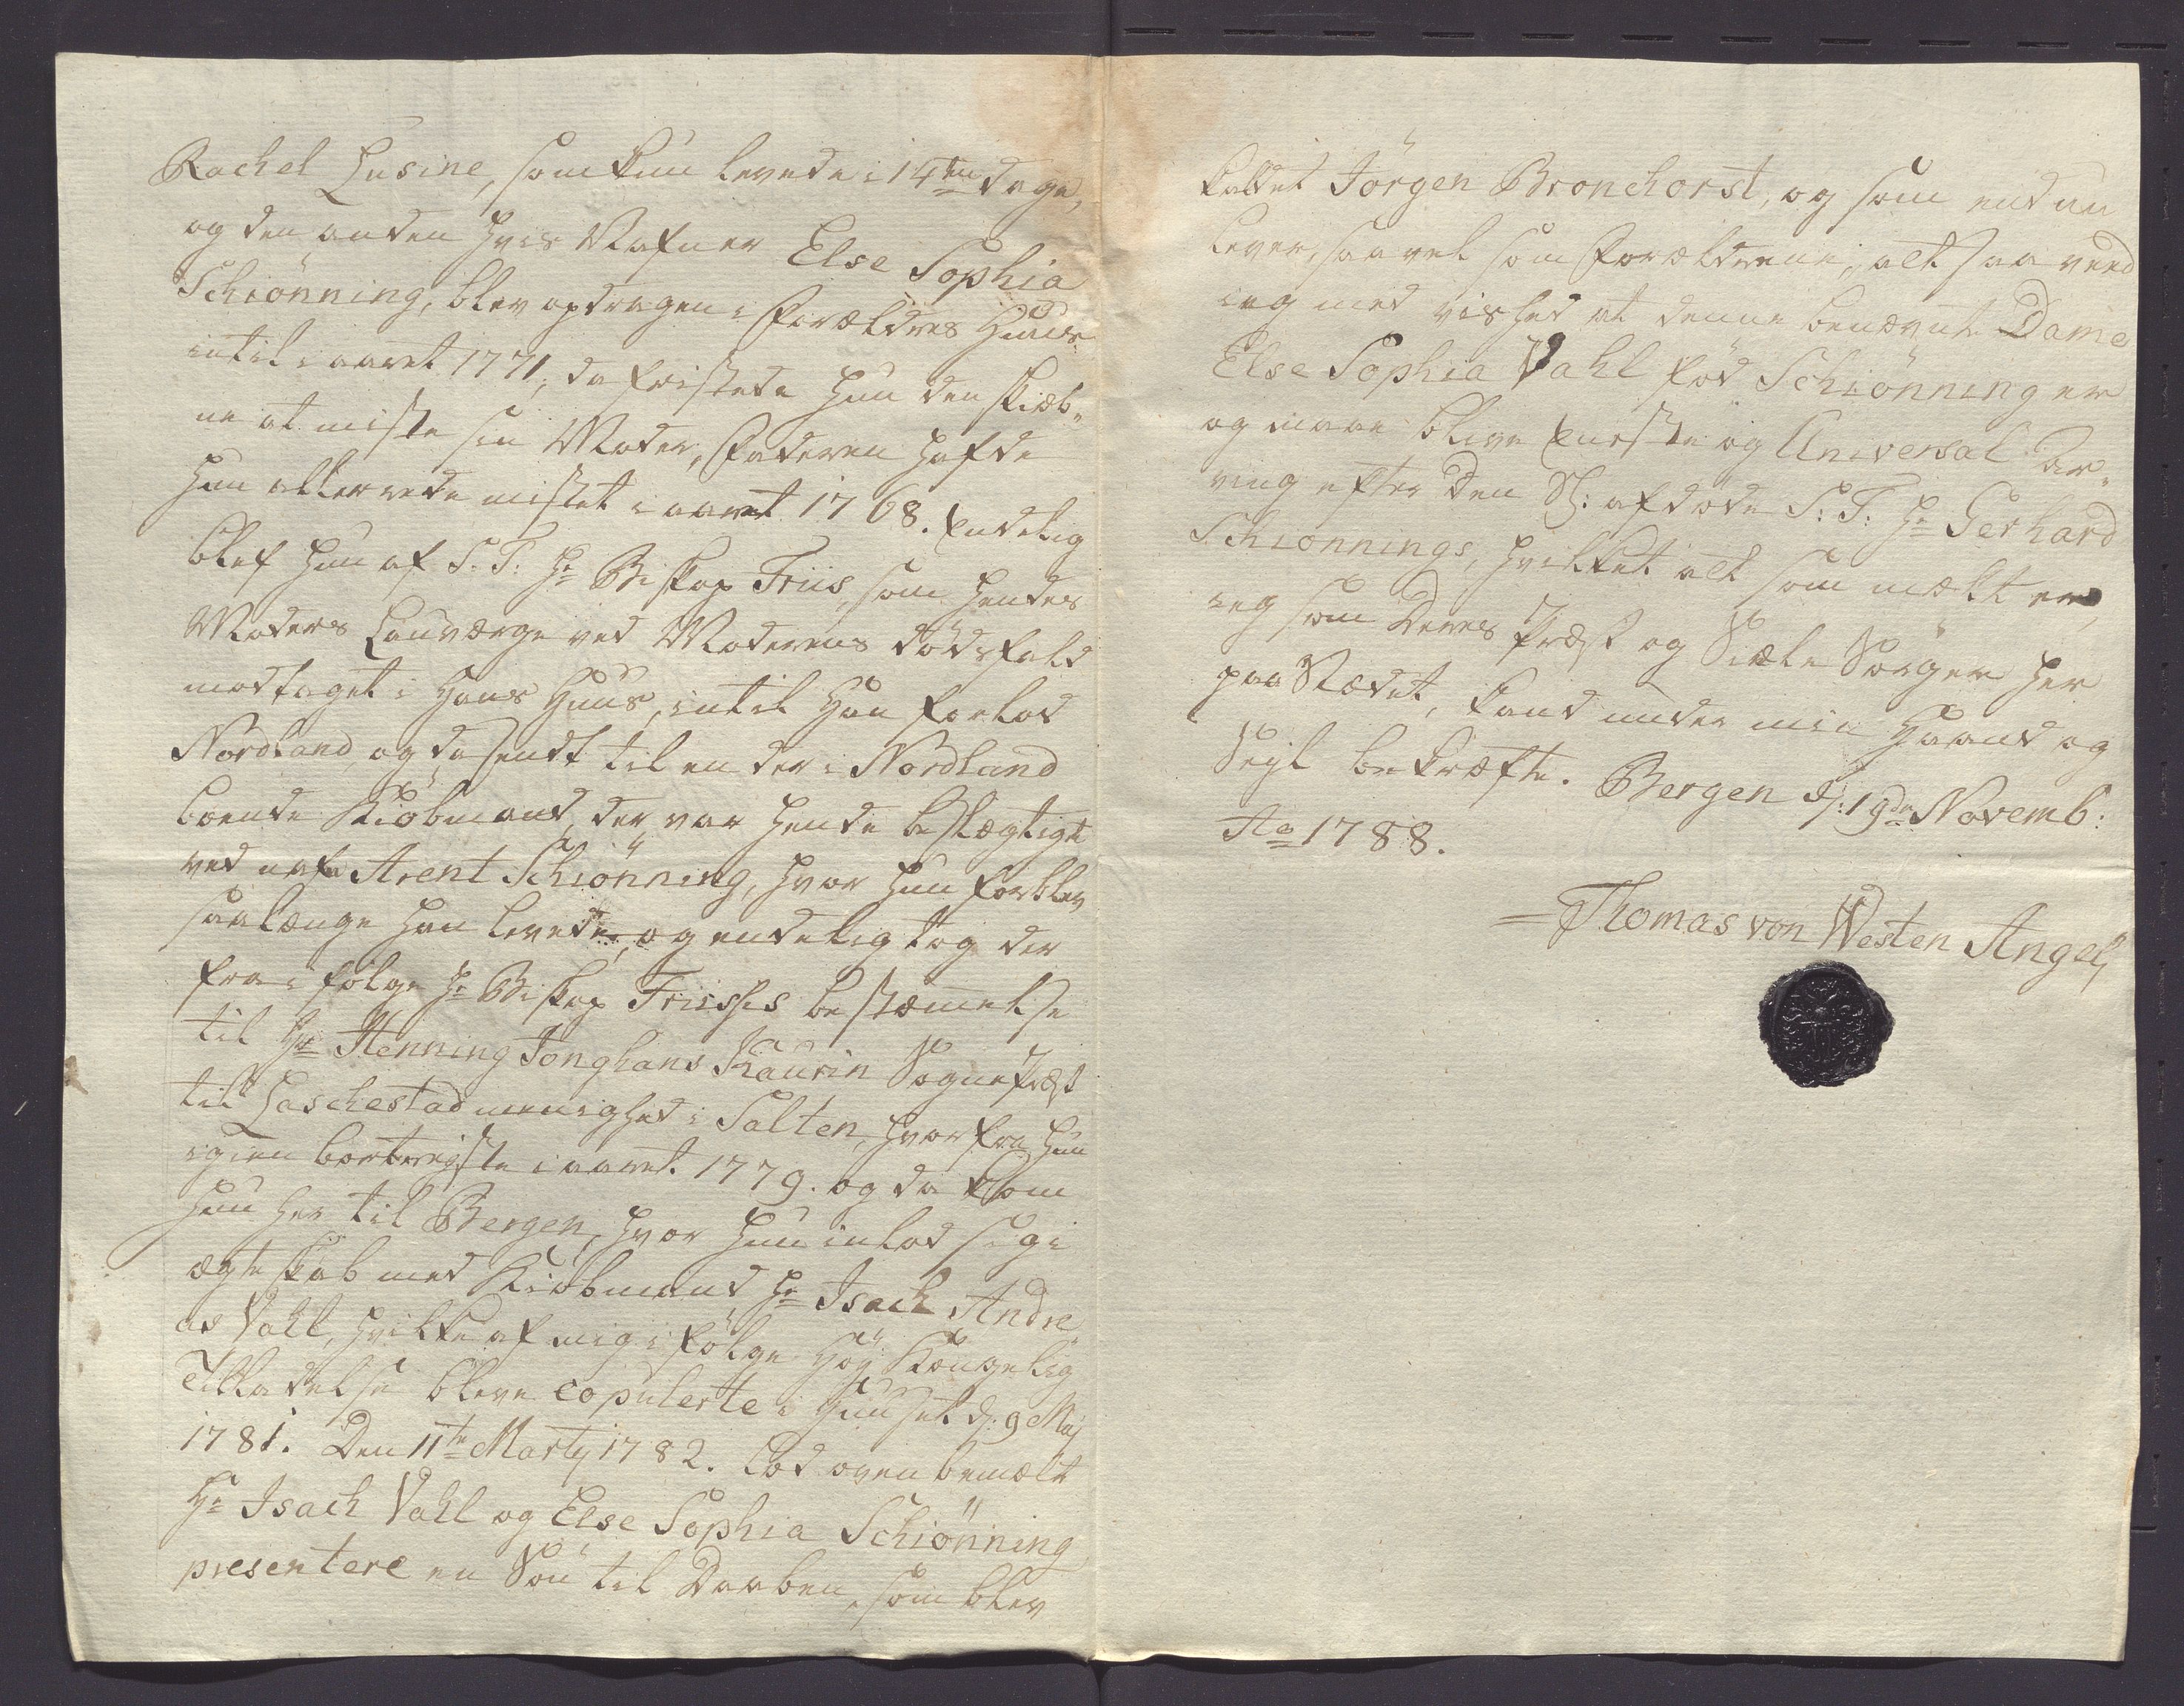 Rachel Lusine, som kun levede i 14ten dage,
og den anden hvis Nafn er Else Sophia
Schiönning, blev opdragen i Forældres Huus
intil i aaret 1771, da fristede hun den skiæb-
ne at miste sin Moder, Faderen hafde
hun allerrede mistet i aaret 1768. Endelig
blef hun af S. T. Hr Biskop Friis, som hendes
Moders Laugværge ved Moderens dödsfald
modtaget i Hans Huus, intil Han forlod
Nordland, og da sendt til en der i Nordland
boende Kiöbmand, der var hende beslægtigt
ved nafn Arent Schiönning, hvor hun forblev
saalænge han levede, og endelig tog der
fra i fölge Hr Biskop Friises bestæmelse
til Hr Henning Jonghans Kaurin Sognepræst
til Laschestad meenighed i Salten, hvorfra hun
igien bortreiste i aaret 1779. og da kom
hun her til Bergen, hvor hun inlod sig i
ægteskab med Kiöbmand Hr Isach Andre-
as Vahl, hvilke af mig i fölge höy Kongelig
Tilladelse bleve copulerte i Huuset d. 9 Maj
1781. Den 11te Martij 1782. lod oven bemælte
Hr Isach Vahl og Else Sophia Schiönning
presentere en Sön til Daaben, som blev
kaldet Jörgen Bronchorst, og som end nu
lever, saavel som Forældrene; alt saa veed
ieg med vished at denne benævnte Dame
Else Sophia Vahl föd Schiönning er
og maae blive Eneste og Universal Ar-
ving efter den Sl: afdöde S: T: Hr Gerhard
Schiönnings, hvilket alt som mælt er,
ieg som Deres Præst og Siæle Sörger her
paa Stædet, kand under min Haand og
Segl bekræfte. Bergen d: 19de Novemb:
Ao 1788.
Thomas von Westen Angell